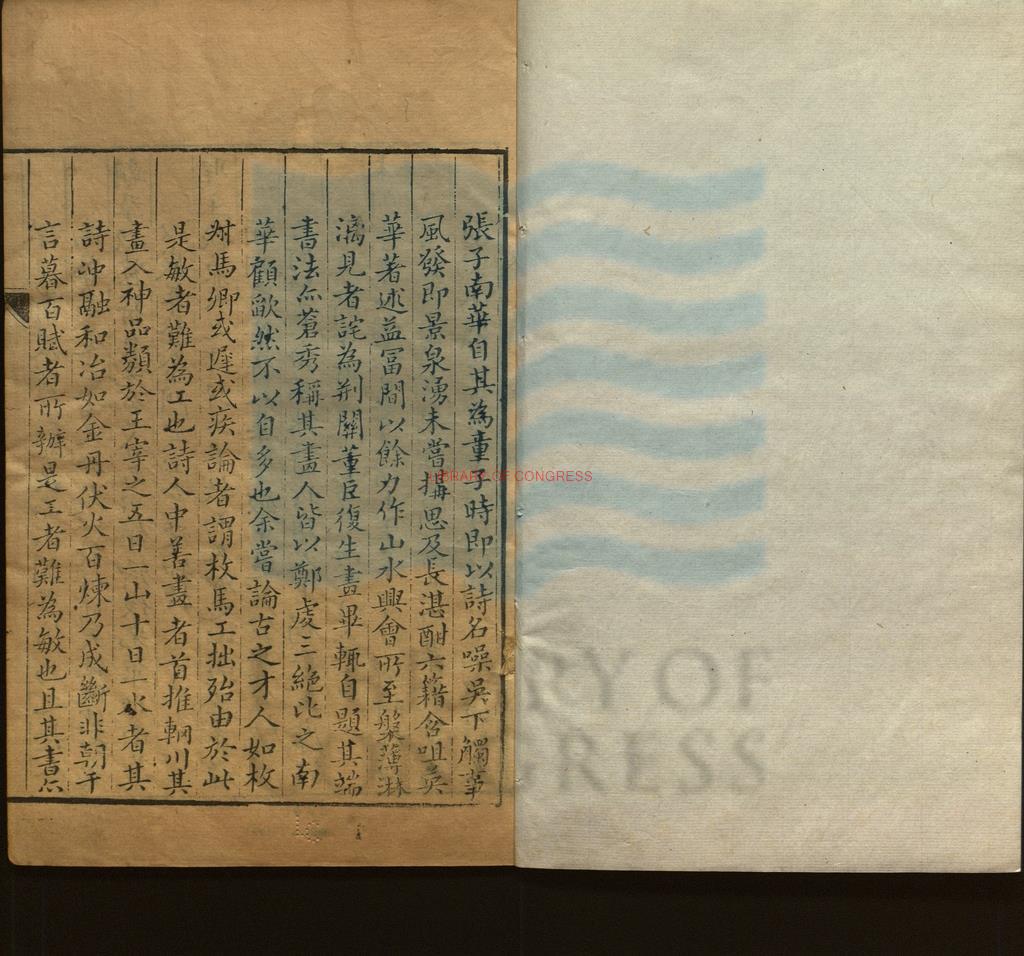 張子南華自其為童子時即以詩名噪吳下觸事
風發即景泉湧未嘗搆思及長湛酣六籍含咀英
華著述益富間以餘力作山水興會所至槃薄淋
漓見者詫為荆關董巨復生畫畢輒自題其端
書法亦蒼秀稱其畫人皆以鄭虔三絕比之南
華顧歉然不以自多也余嘗論古之才人如枚
叔馬卿或遲或疾論者謂枚馬工拙殆由於此
是敏者難為工也詩人中善畫者首推輞川其
畫入神品纇於王宰之五日一山十日一水者其
詩冲融和冶如金丹伏火百煉乃成斷非朝千
言暮百賦者所辦是工者難為敏也且其書亦
LIBRARY OF CONGRESS
RY OF
GRESS